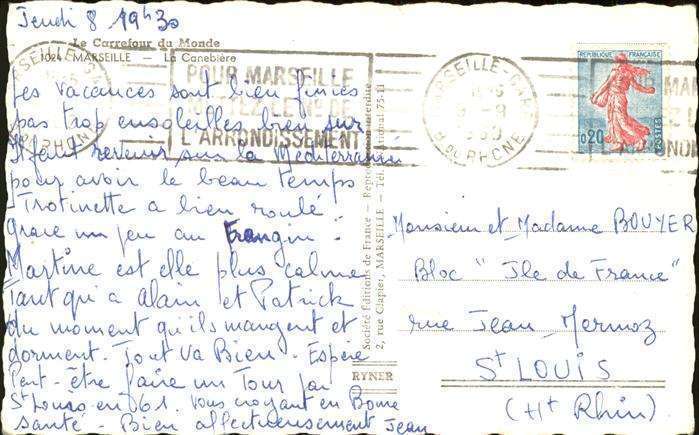 Jeudi 8 19h30
Le Carrefour du Monde
1024 MARSEILLE — La Canebière
Les vacances sont bien finies
pas trop ensoleillées bien sur
Il faut revenir sur la Mediterranée
pour avoir le beau temps
Trotinette a bien roulé
grace un peu au Frangin :
Martine est elle plus calme
Tant qu'a Alain et Patrick
du moment qu'ils mangent et
dorment - Tout va Bien - Espère
Peut-être faire un Tour par
St Louis en 61. Vous croyant en Bonne
Santé - Bien affectueusement Jean
POUR MARSEILLE
LE N° DE
L'ARRONDISSEMENT
MARSEILLE-GARE
B. DU RHONE
REPUBLIQUE FRANÇAISE
0,20
POSTES
Société Editions de France - Reproduction interdite
2, rue Clapier, MARSEILLE - Tél.
RYNER
Monsieur et Madame BOUYER
Bloc "Ile de France"
rue Jean Mermoz
St LOUIS
(Ht Rhin)